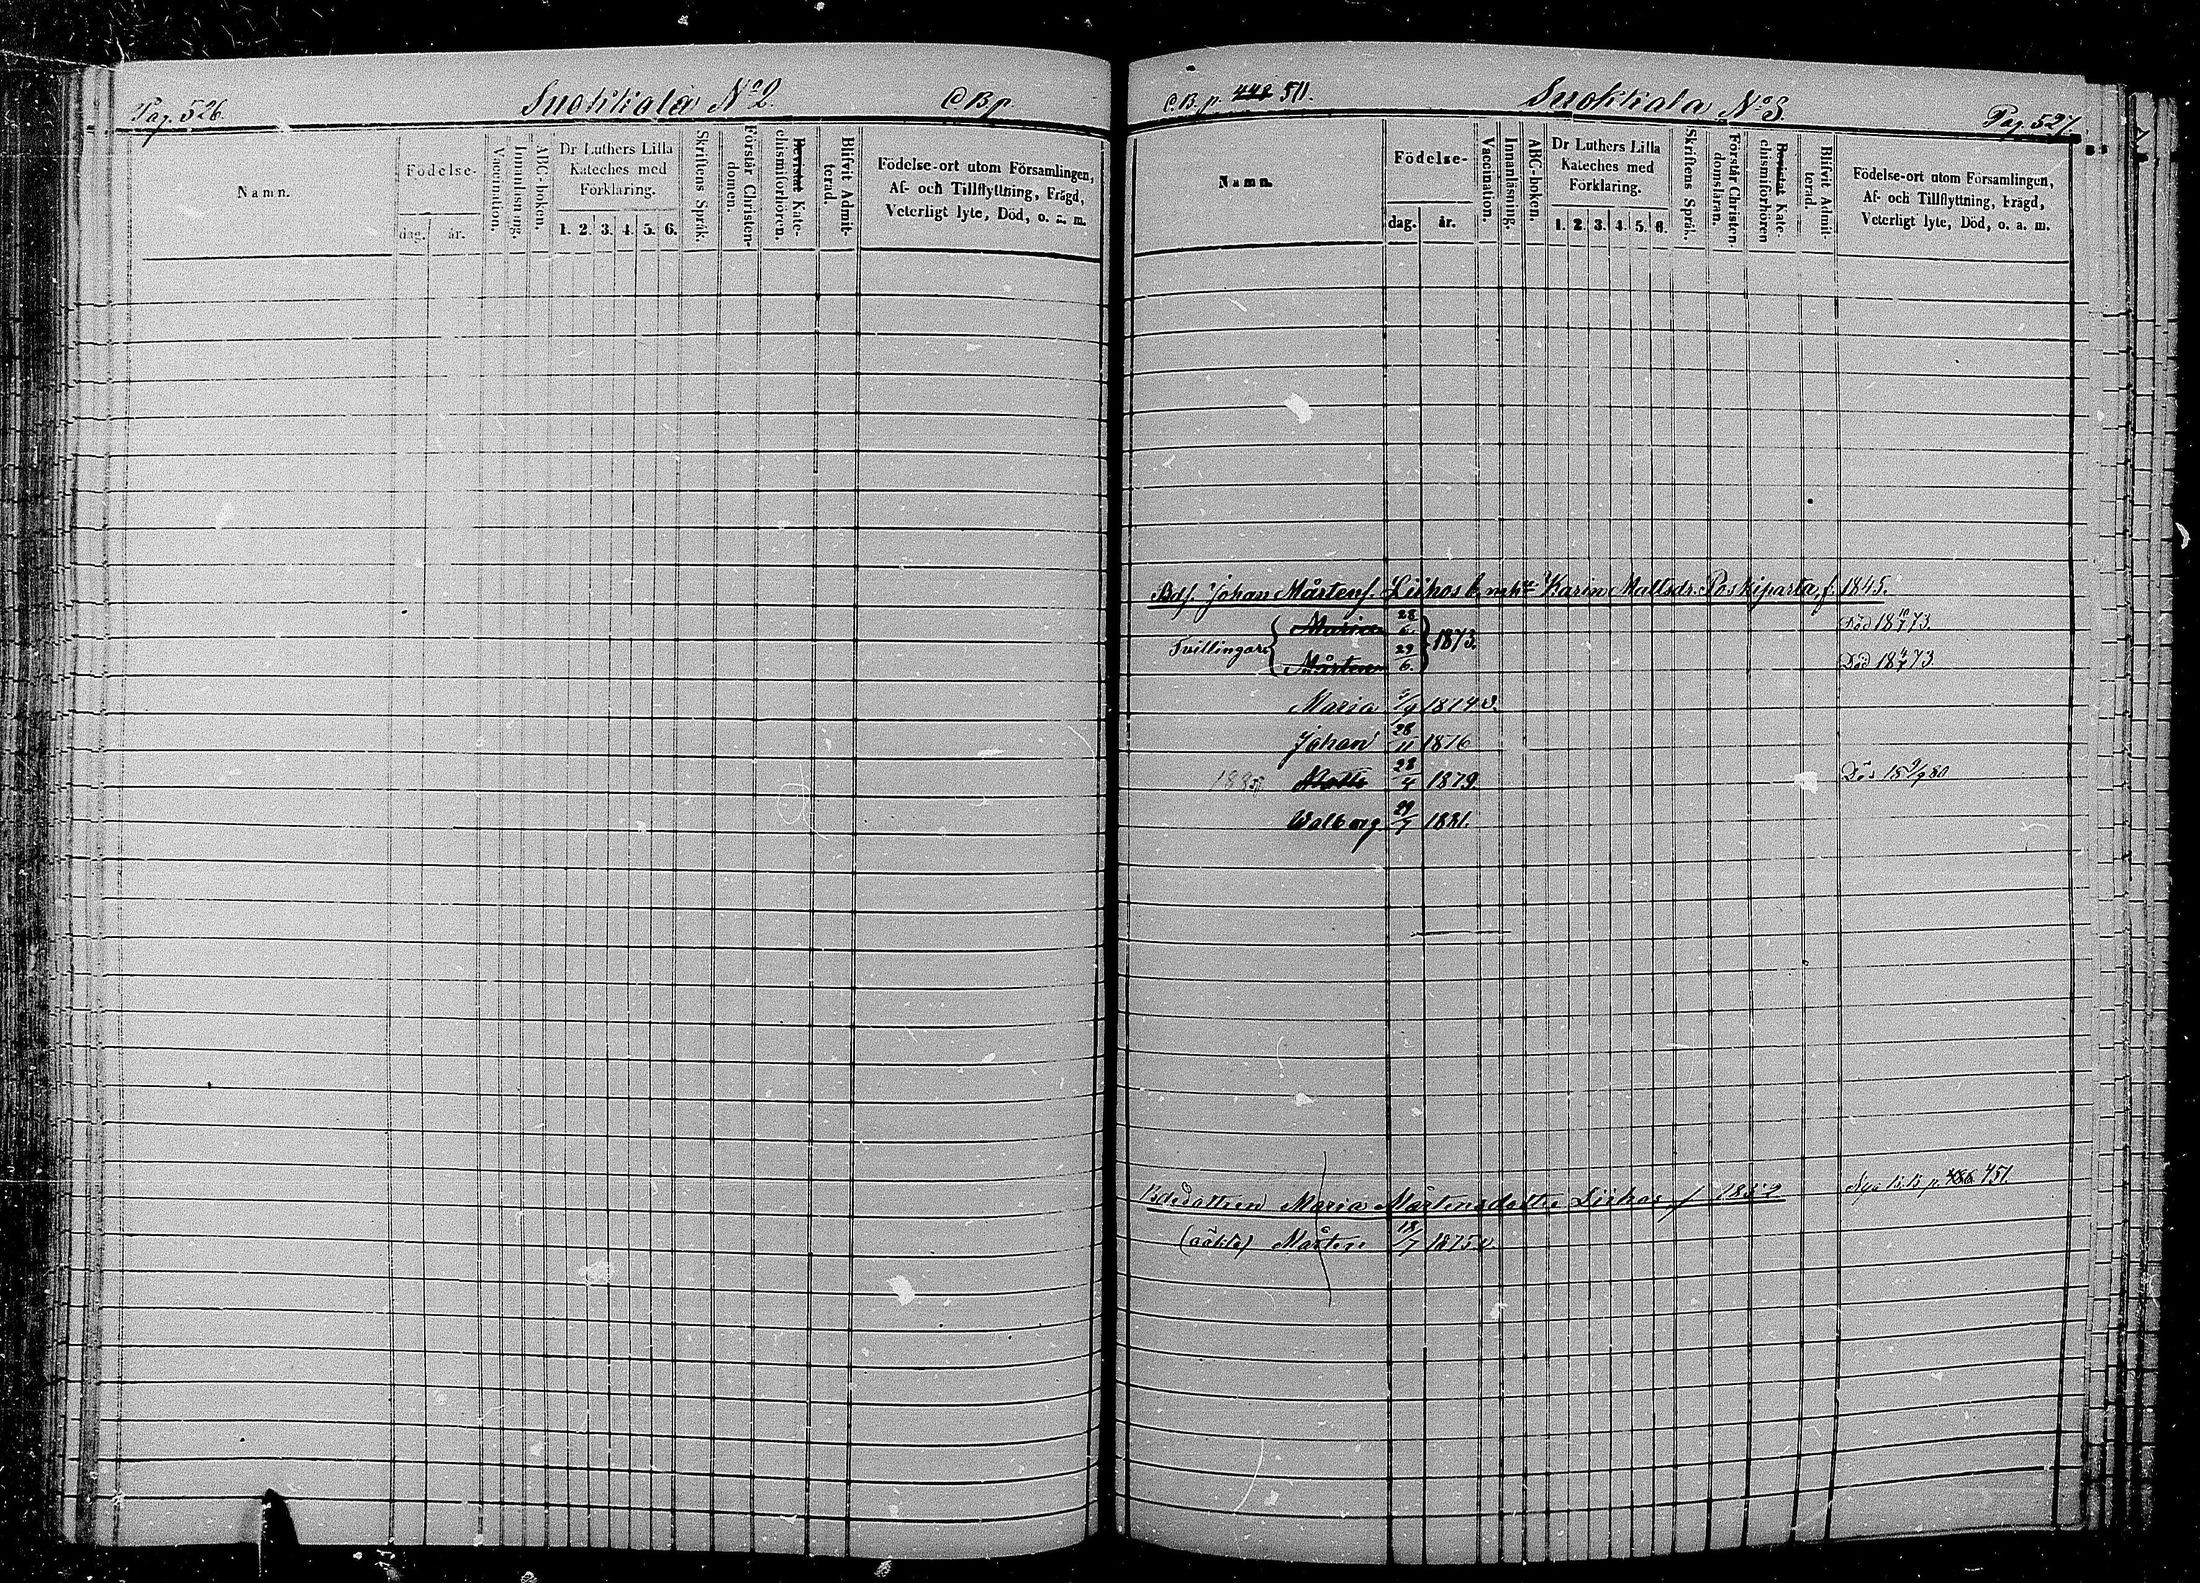 Pag. 526. Suokkala No 2. C.B.p.
Namn.
Födelse-
dag. år.
Vaccination.
Innanläsning.
ABC-boken.
Dr Luthers Lilla
Kateches med
Förklaring.
1. 2. 3. 4. 5. 6.
Skriftens Språk.
Förstår Christen-
domen.
Bevistat Kate-
chismiförhören.
Blifvit Admit-
terad.
Födelse-ort utom Församlingen,
Af- och Tillflyttning, Frägd,
Veterligt lyte, Död, o. a. m.
C.B.p. 448 511. Suokkala No 3. Pag. 527.
Namn.
Födelse-
dag. år.
Vaccination.
Innanläsning.
ABC-boken.
Dr Luthers Lilla
Kateches med
Förklaring.
1. 2. 3. 4. 5. 6.
Skriftens Språk.
Förstår Christen-
domsläran.
Bevistat Kate-
chismiförhören
Blifvit Admit-
terad.
Födelse-ort utom Församlingen,
Af- och Tillflyttning, Frägd,
Veterligt lyte, Död, o. a. m.
Bds. Johan Mårtens. Liikos Karin Mattsdr. Poskiparta, f. 1845.
Tvillingar Maria 28/6 1873. Död 18 73.
Mårten 29/6 Död 18 73
Maria 1874 v.
Johan 28/11 1876
Matts 28/4 1879. Död 18 9/9 80
Walborg 29/7 1881.
Bdedottren Maria Mårtensdotter Liikos f 1852 p. 486 451.
(oäkta) Mårten 18/7 1875 v.